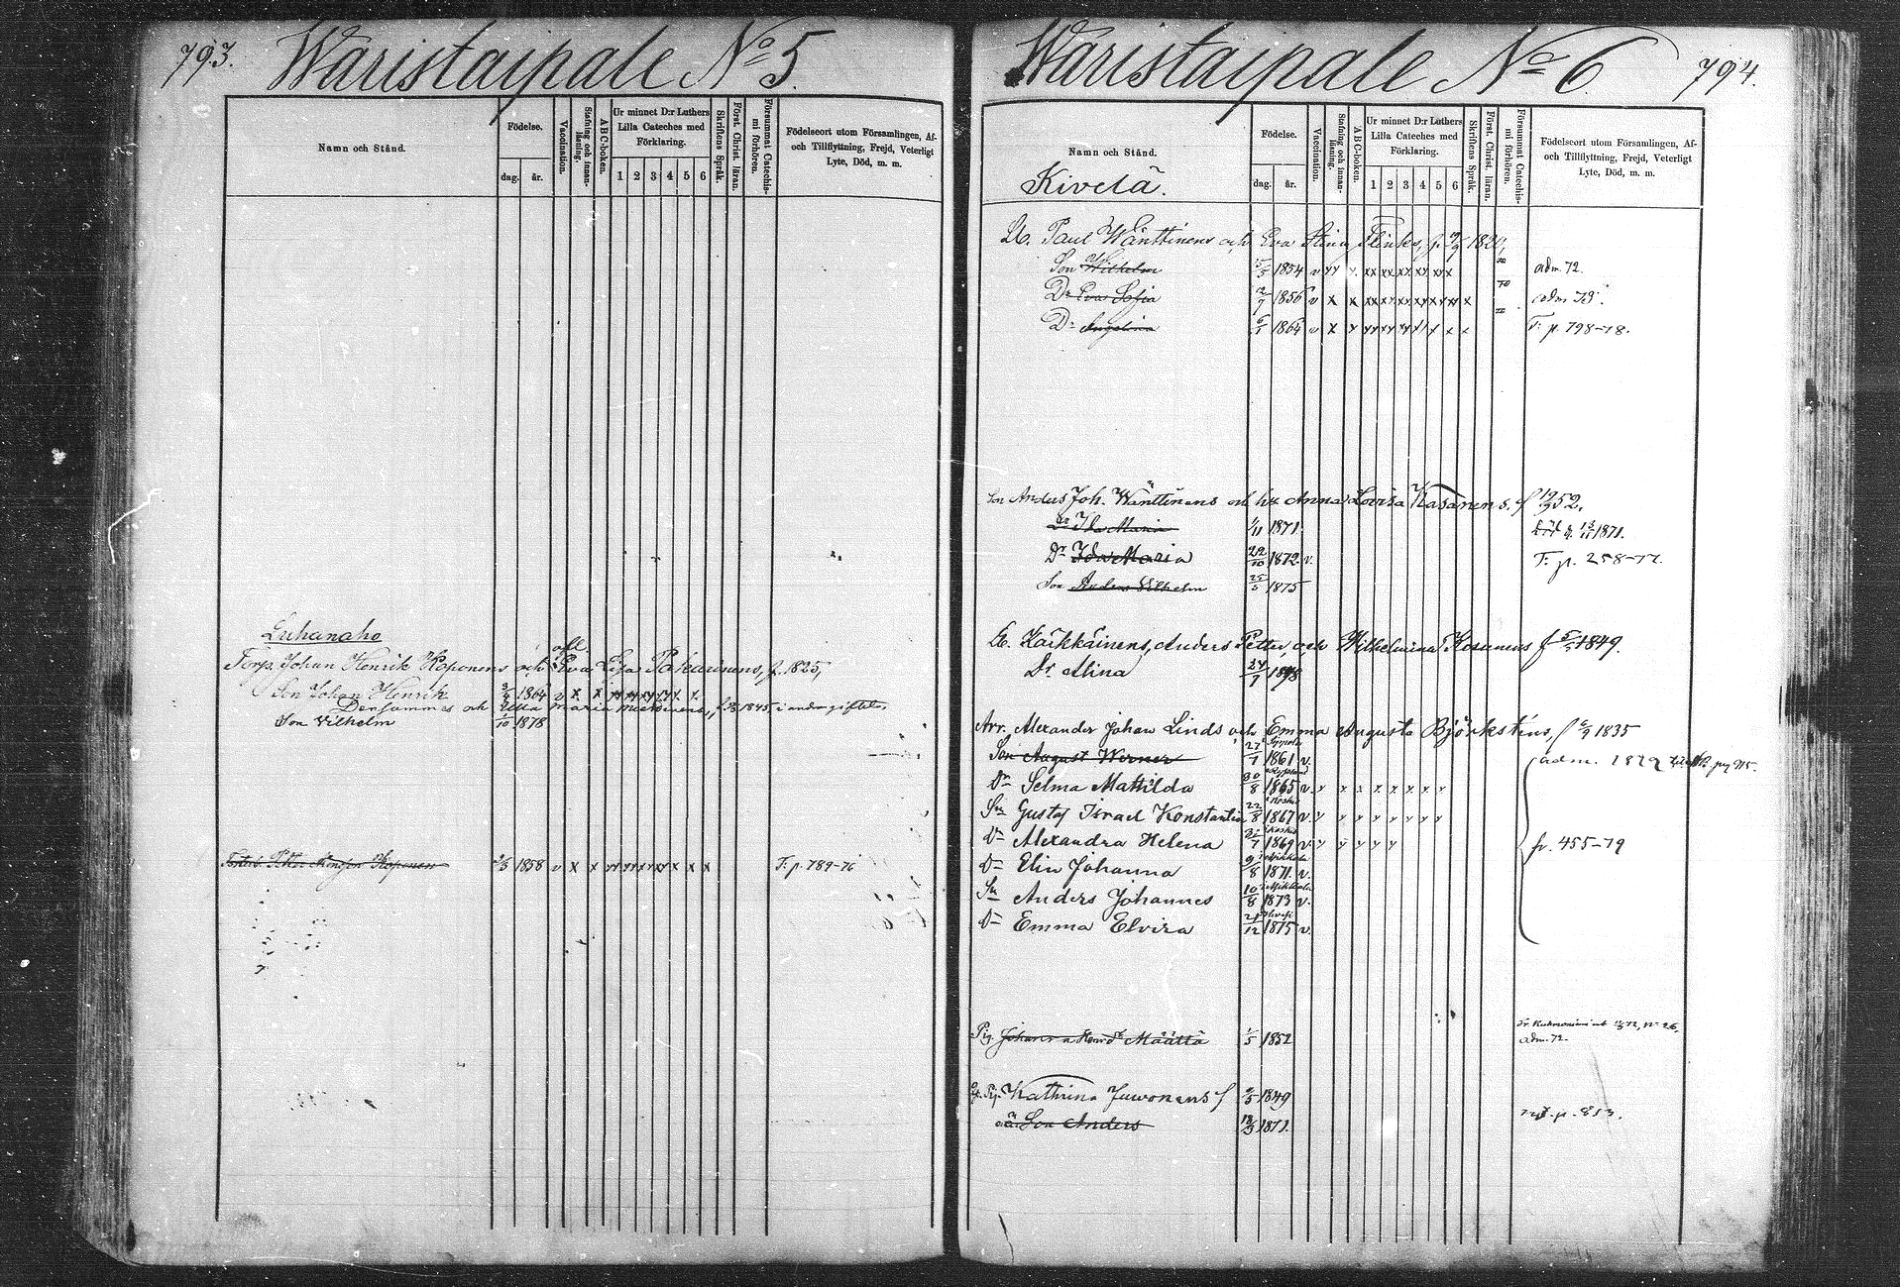 793. Waristaipale No 5.
Namn och Stånd.
Födelse.
dag. år.
Vaccination.
Stafning och innanläsning.
ABC-boken.
Ur minnet D:r Luthers Lilla Cateches med Förklaring.
1 2 3 4 5 6
Skriftens Språk.
Först. Christ. läran.
Försummat Catechismi förhören.
Födelseort utom Församlingen, Af- och Tillflyttning, Frejd, Veterligt Lyte, Död, m. m.
Luhanaho
Torp. Johan Henrik Koponens och Eva Lisa Pakarinens, f. 1825,
Son Johan Henrik 1864 v x x
Densammes och Ulla Maria f. 1845 i andra giftet.
Son Vilhelm 1/10 1878
Petter Koponen 1858 v x x T. p. 789-76
Waristaipale No 6. 794.
Namn och Stånd.
Kivelä.
Födelse.
dag. år.
Vaccination.
Stafning och innanläsning.
ABC-boken.
Ur minnet D:r Luthers Lilla Cateches med Förklaring.
1 2 3 4 5 6
Skriftens Språk.
Först. Christ. läran.
Försummat Catechismi förhören.
Födelseort utom Församlingen, Af- och Tillflyttning, Frejd, Veterligt Lyte, Död, m. m.
Lb. Paul Wänttinens och Eva Stina Flinks, f. 1820,
Son Wilhelm 1854 v adm. 72.
Dr Eva Sofia 1856 v x x adm. 73.
Dr Angelina 6/1 1864 v x T. p. 798-78.
Son Anders Joh. Wänttinens och hu Anna Lovisa Kasanens. f 52.
Dr Ida Maria 1/11 1871. 1871.
Dr Ida Maria 22/10 1872 v. T. p. 258-77.
Son Anders Vilhelm 25/5 1875
Lb. Kärkkäinens, Anders Petter, och Wilhelmina Kosanens f 1849.
Dr Alina 24/7 1878
Arr. Alexander Johan Linds och Emma Augusta Björksténs, f 1835
Son August Werner 27/7 1861 v. adm. 1879
Dr Selma Mathilda 30/8 1865 v.
Sn Gustaf Israel Konstantin 22/8 1867 v.
Dr Alexandra Helena 1869 v. fr. 455-79
Dr Elin Johanna 9/8 1871. v.
Sn Anders Johannes 10/8 1873 v.
Dr Emma Elvira 21/12 1875 v.
Pig. Johanna Määttä 1/5 1852 adm. 72.
Pig. Kathrina Juvonens f 1849
oä Son Anders 1871. p. 813.